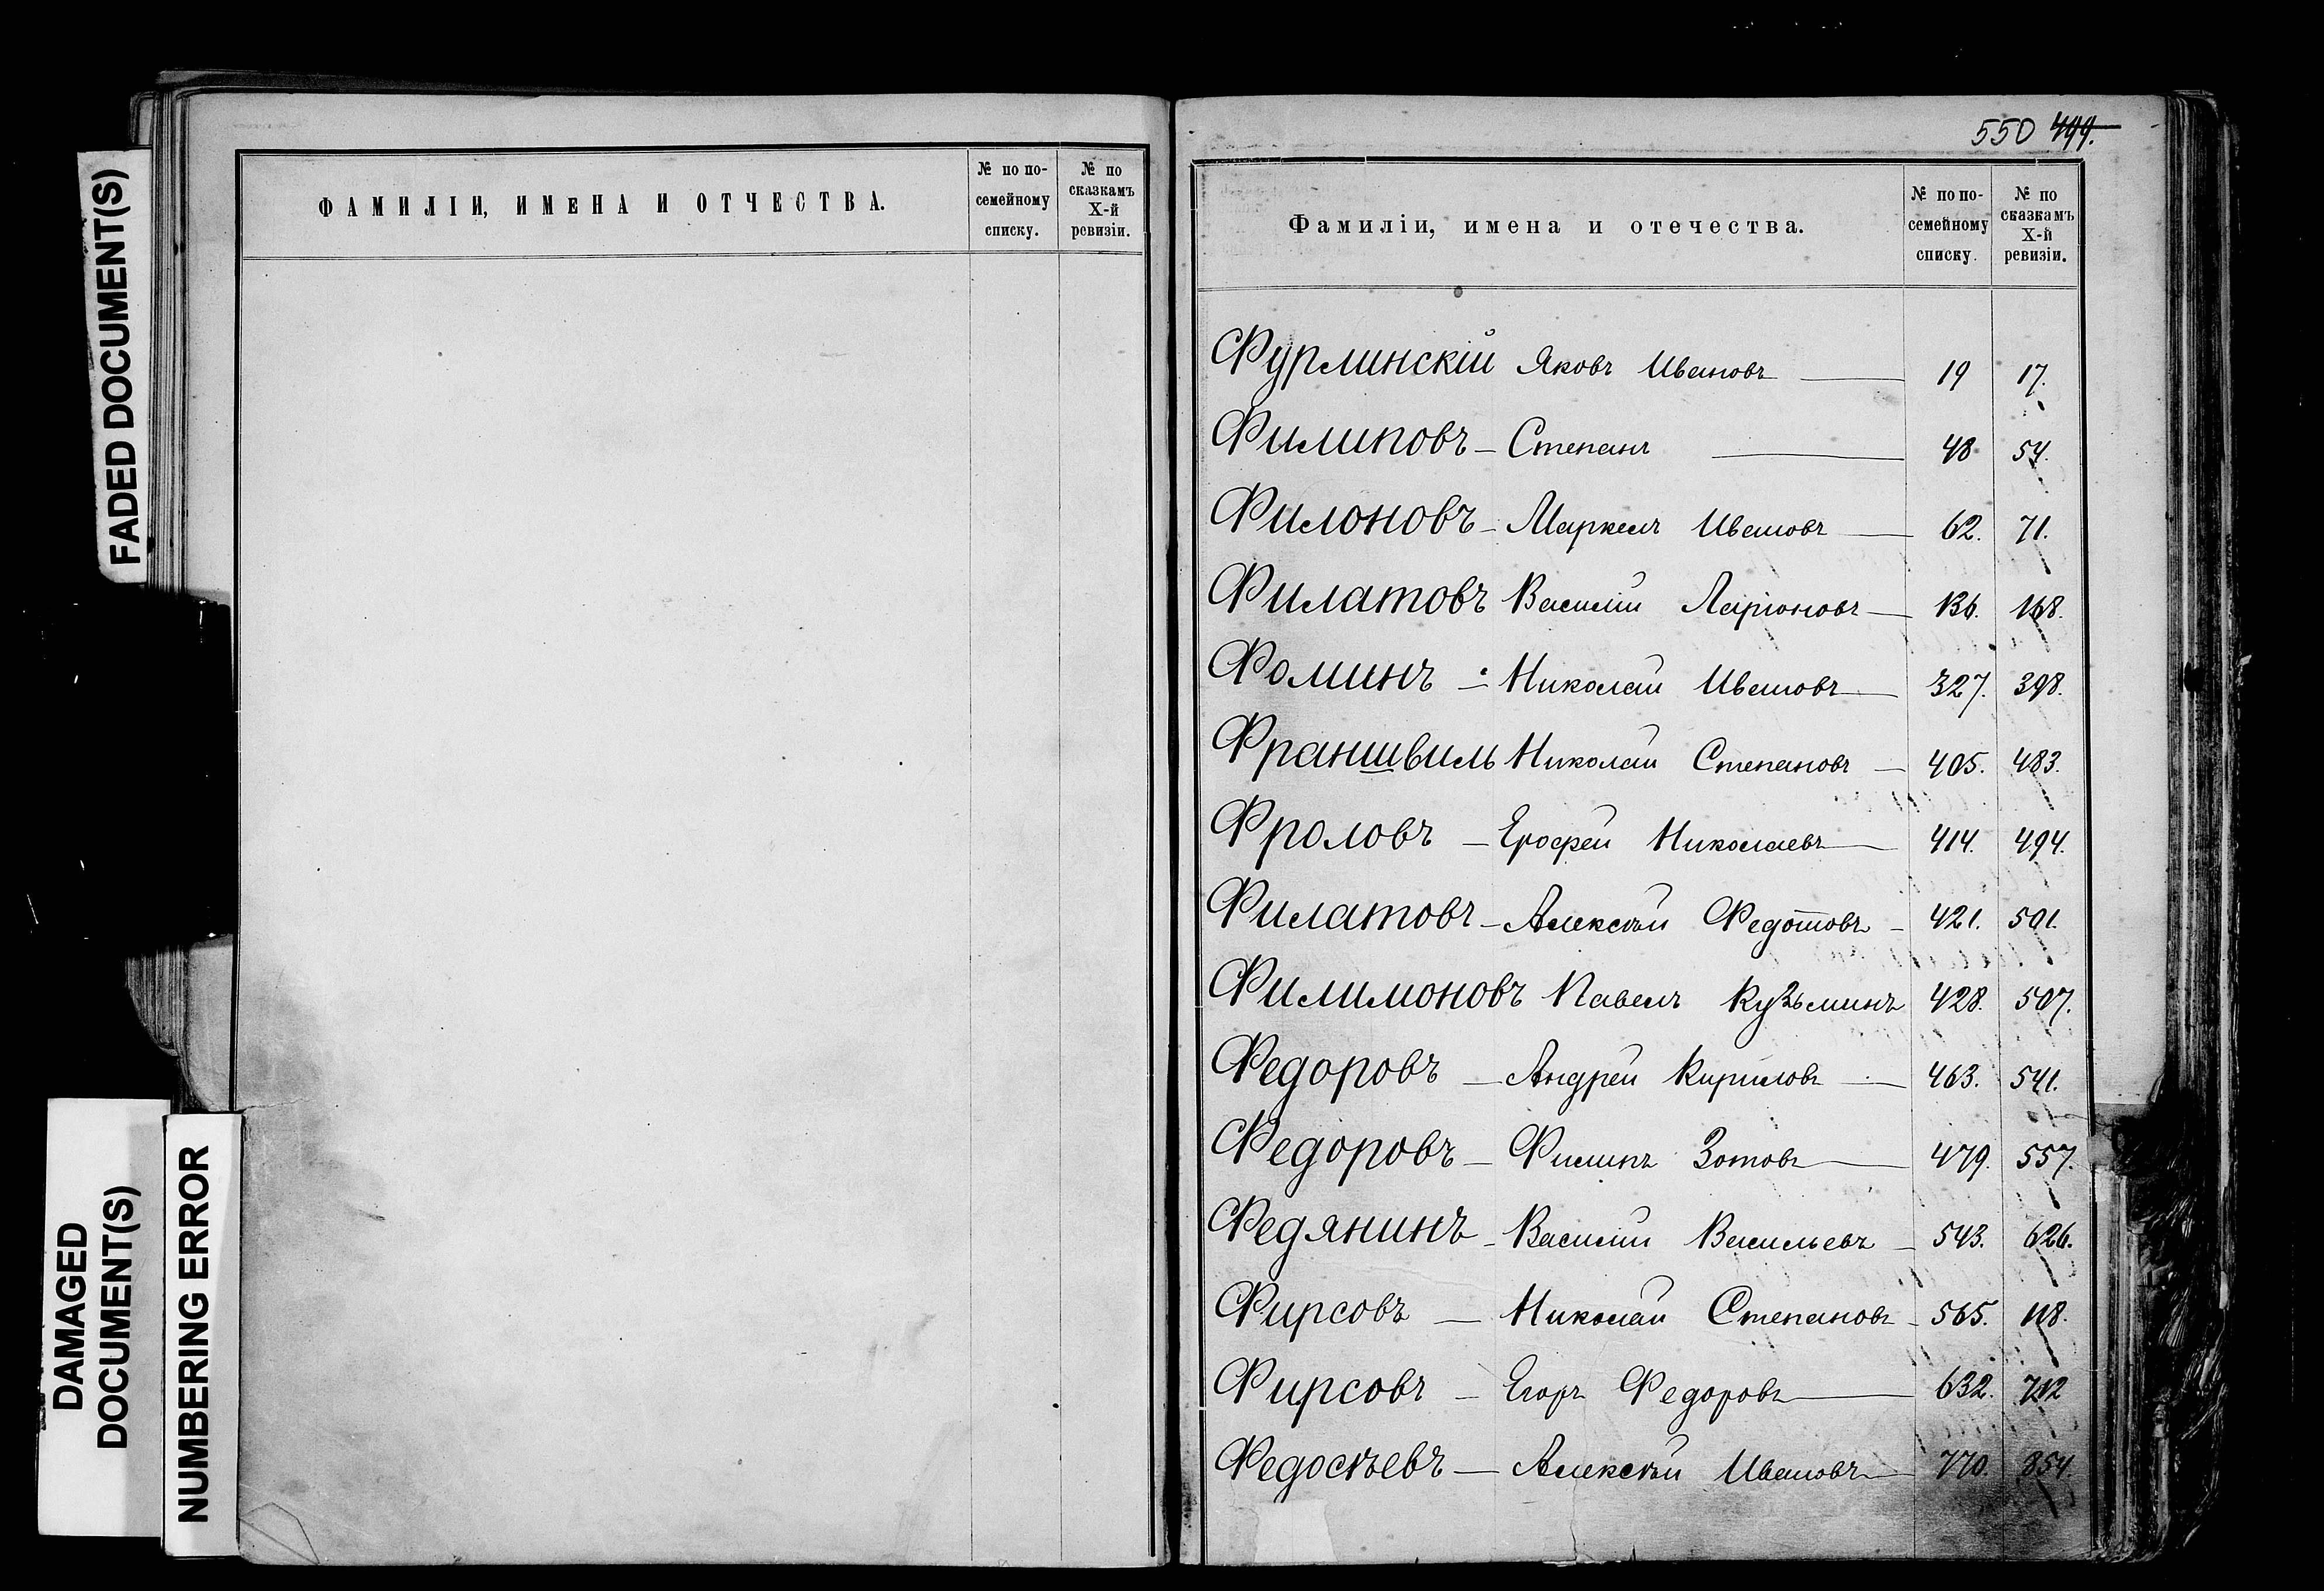 FADED DOCUMENT(S)
DAMAGED
DOCUMENT(S)
NUMBERING ERROR
ФАМИЛІИ, ИМЕНА И ОТЧЕСТВА.
№ по по-
семейному
списку.
№ по
сказкамъ
X-й
ревизіи.
550 499.
Фамиліи, имена и отечества.
№ по по-
семейному
списку.
№ по
сказкамъ
X-й
ревизіи.
Фурлинскій Яковъ Ивановъ — 19 17.
Филиповъ — Степанъ — 48 54.
Филоновъ — Маркелъ Ивановъ — 62. 71.
Филатовъ Василій Ларіоновъ — 136. 168.
Фоминъ — Николай Ивановъ — 327. 398.
Франшвиль Николай Степановъ — 405. 483.
Фроловъ — Ерофей Николаевъ — 414. 494.
Филатовъ — Алексѣй Федотовъ — 421. 501.
Филимоновъ Павелъ Кузьминъ 428. 507.
Федоровъ — Андрей Кириловъ — 463. 541.
Федоровъ — Филипъ Зотовъ — 479. 557.
Федянинъ — Василій Васильевъ — 543. 626.
Фирсовъ — Николай Степановъ — 565. 118.
Фирсовъ — Егоръ Федоровъ — 632. 712
Федосѣевъ — Алексѣй Ивановъ — 770. 854.